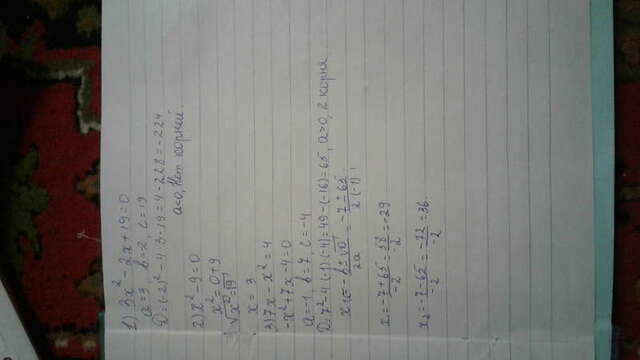 1) 3x² - 2x + 19 = 0
a=3, b=2, c=19
D=(-2)² - 4·3·19 = 4 - 228 = -224
a<0, Нет корней.
2) x² - 9 = 0
x² = 0+9
√x² = √9
x = 3
3) 7x - x² = 4
-x² + 7x - 4 = 0
a=-1, b=7, c=-4
D=7² - 4·(-1)·(-4) = 49 - (-16) = 65, a>0, 2 корня
x = -b±√D / 2a = -7±65 / 2·(-1)
x = -7+65 / -2 = 58 / -2 = -29
x₂ = -7-65 / -2 = -72 / -2 = 36